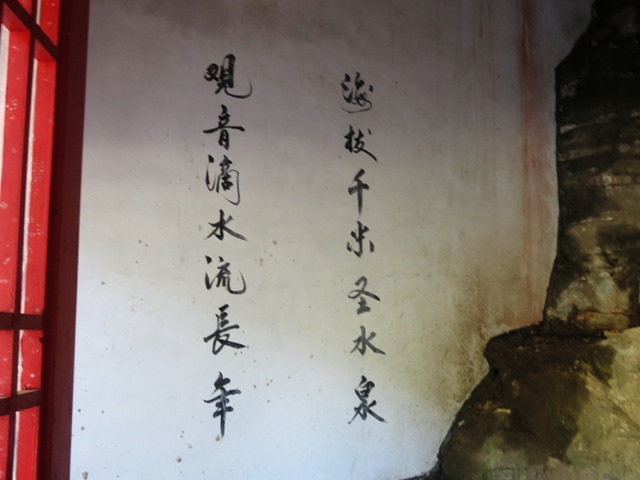 海拔千米圣水泉
观音滴水流長年